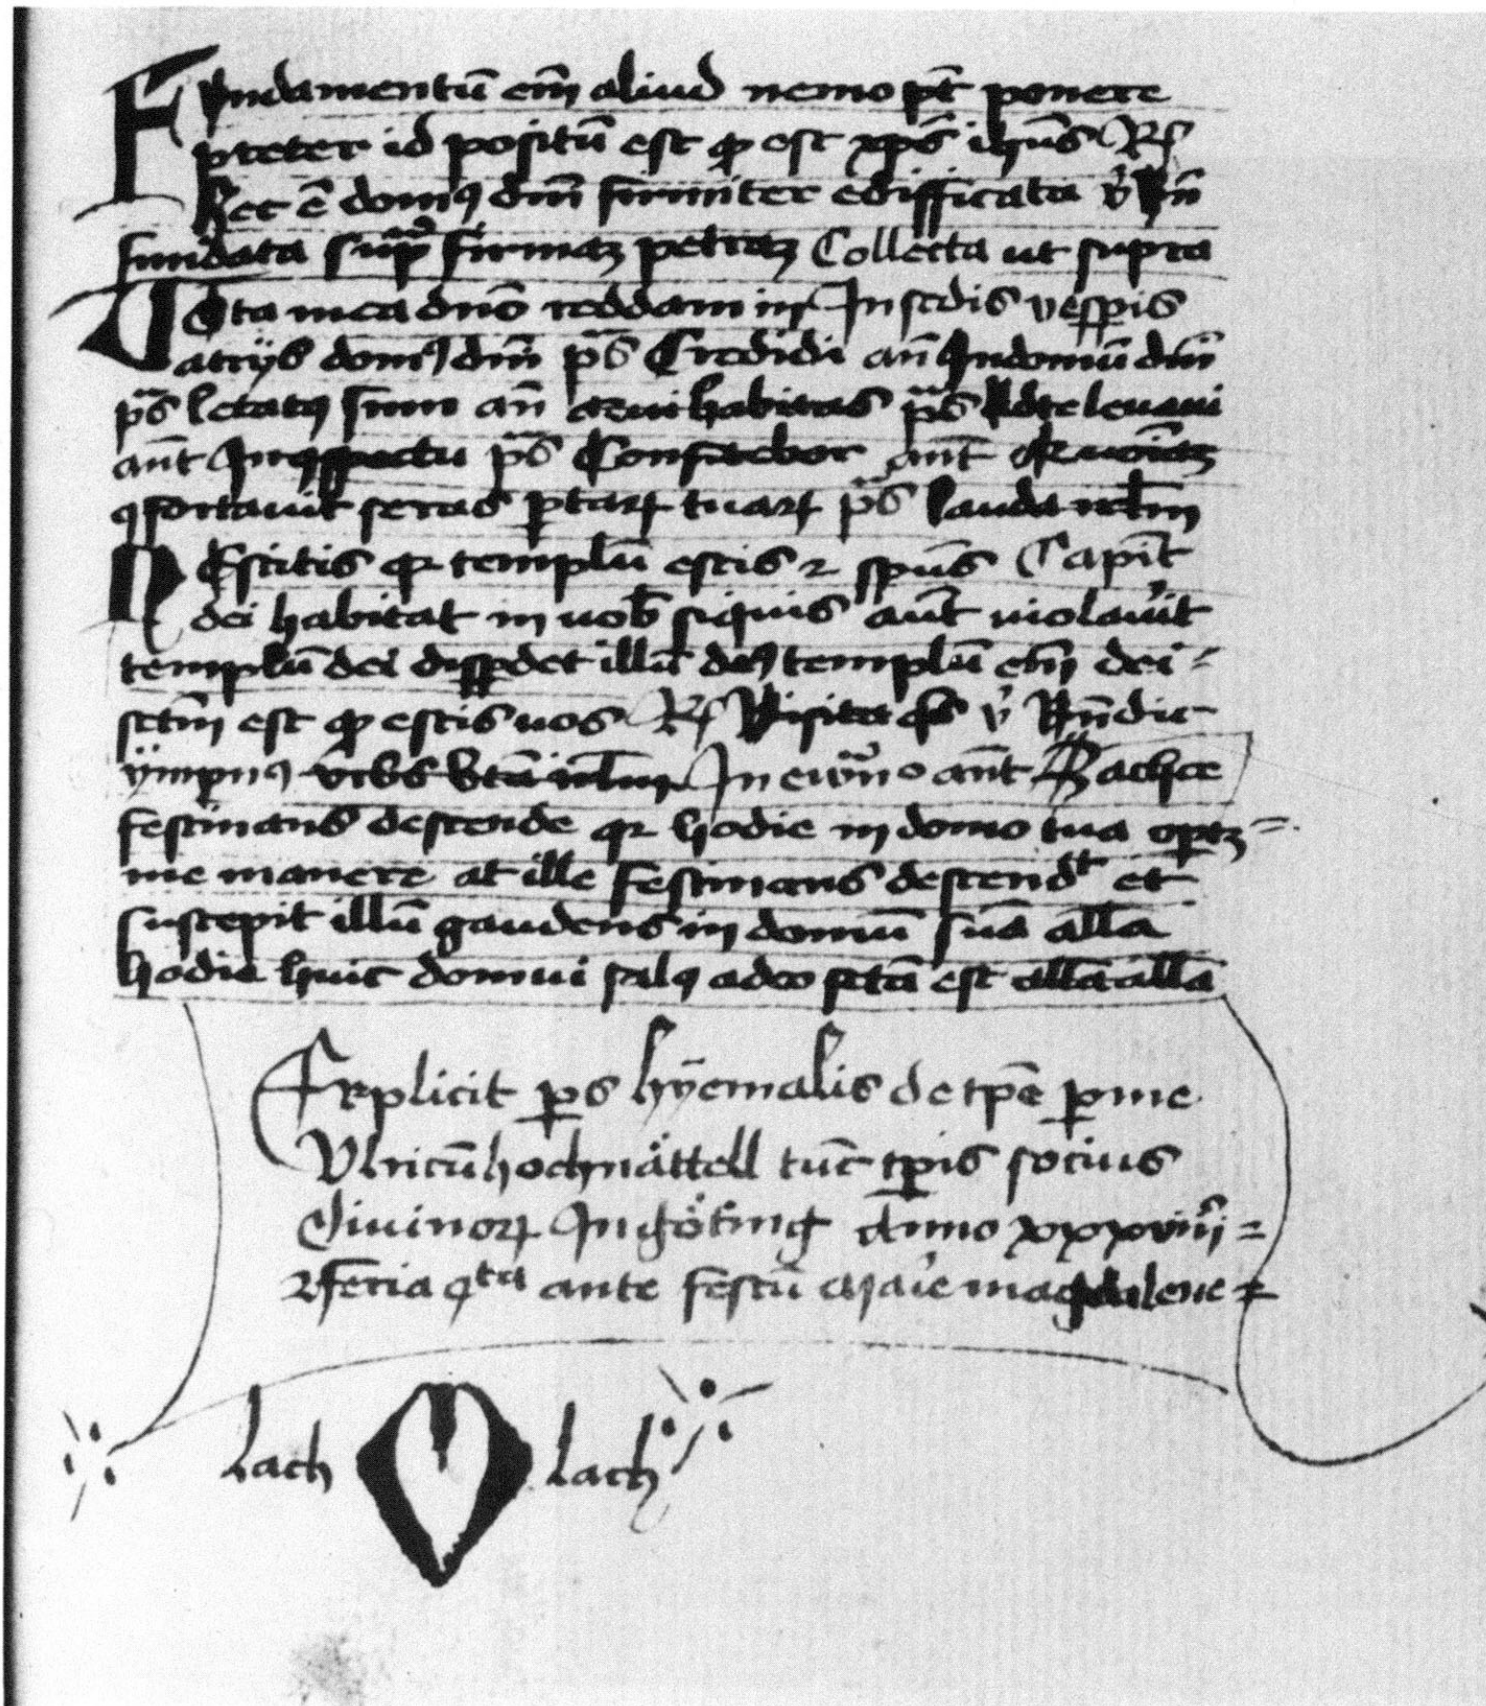 Fundamentū em̄ aliud nemo pt̄ ponere
preter id positū est qđ est xp̄s ih̄us R̄
hec ē domꝰ dn̄i firmiter edifficata v̄ Bn̄
fundata sup̄ firmaꝫ petraꝫ Collecta ut supra
Vota mea dn̄o reddam in In scd̄is vesp̄is
atrÿs domꝰ dn̄i p̄s Credidi an̄ In domū dn̄i
p̄s letatꝰ sum an̄ qui habitas p̄s Ad te levavi
ān̄t In ꝯspectu p̄s Confitebor ān̄t
ꝯfortavit seras ꝑtaꝝ tuaꝝ p̄s lauda ierl̄m
Nescitis qꝛ templū estis ⁊ spūs Capīt
dei habitat in uob̄ siquis aūt uiolav̄it
templū dei disꝑdet illū deꝰ templū em̄ dei
sct̄m est qđ estis uos R̄ Visita qs̄ v̄ Bn̄dic
ÿmpnꝰ vrbs bt̄a ierl̄m In ewāo ān̄t Zachee
festinans descende qꝛ hodie in domo tua oꝑtꝫ
me manere at ille festinans descendt et
suscepit illū gaudens in domū suā all̄a
hodie huic domui salꝰ a deo fctā est all̄a all̄a
Explicit ꝑs hÿemalis de tp̄e ꝑ me
Vlricū hochnättell tūc tꝑis socius
diuinoꝝ In göting Anno xxxviiij
⁊ feria qta ante festū Marie magdalene
lach lach